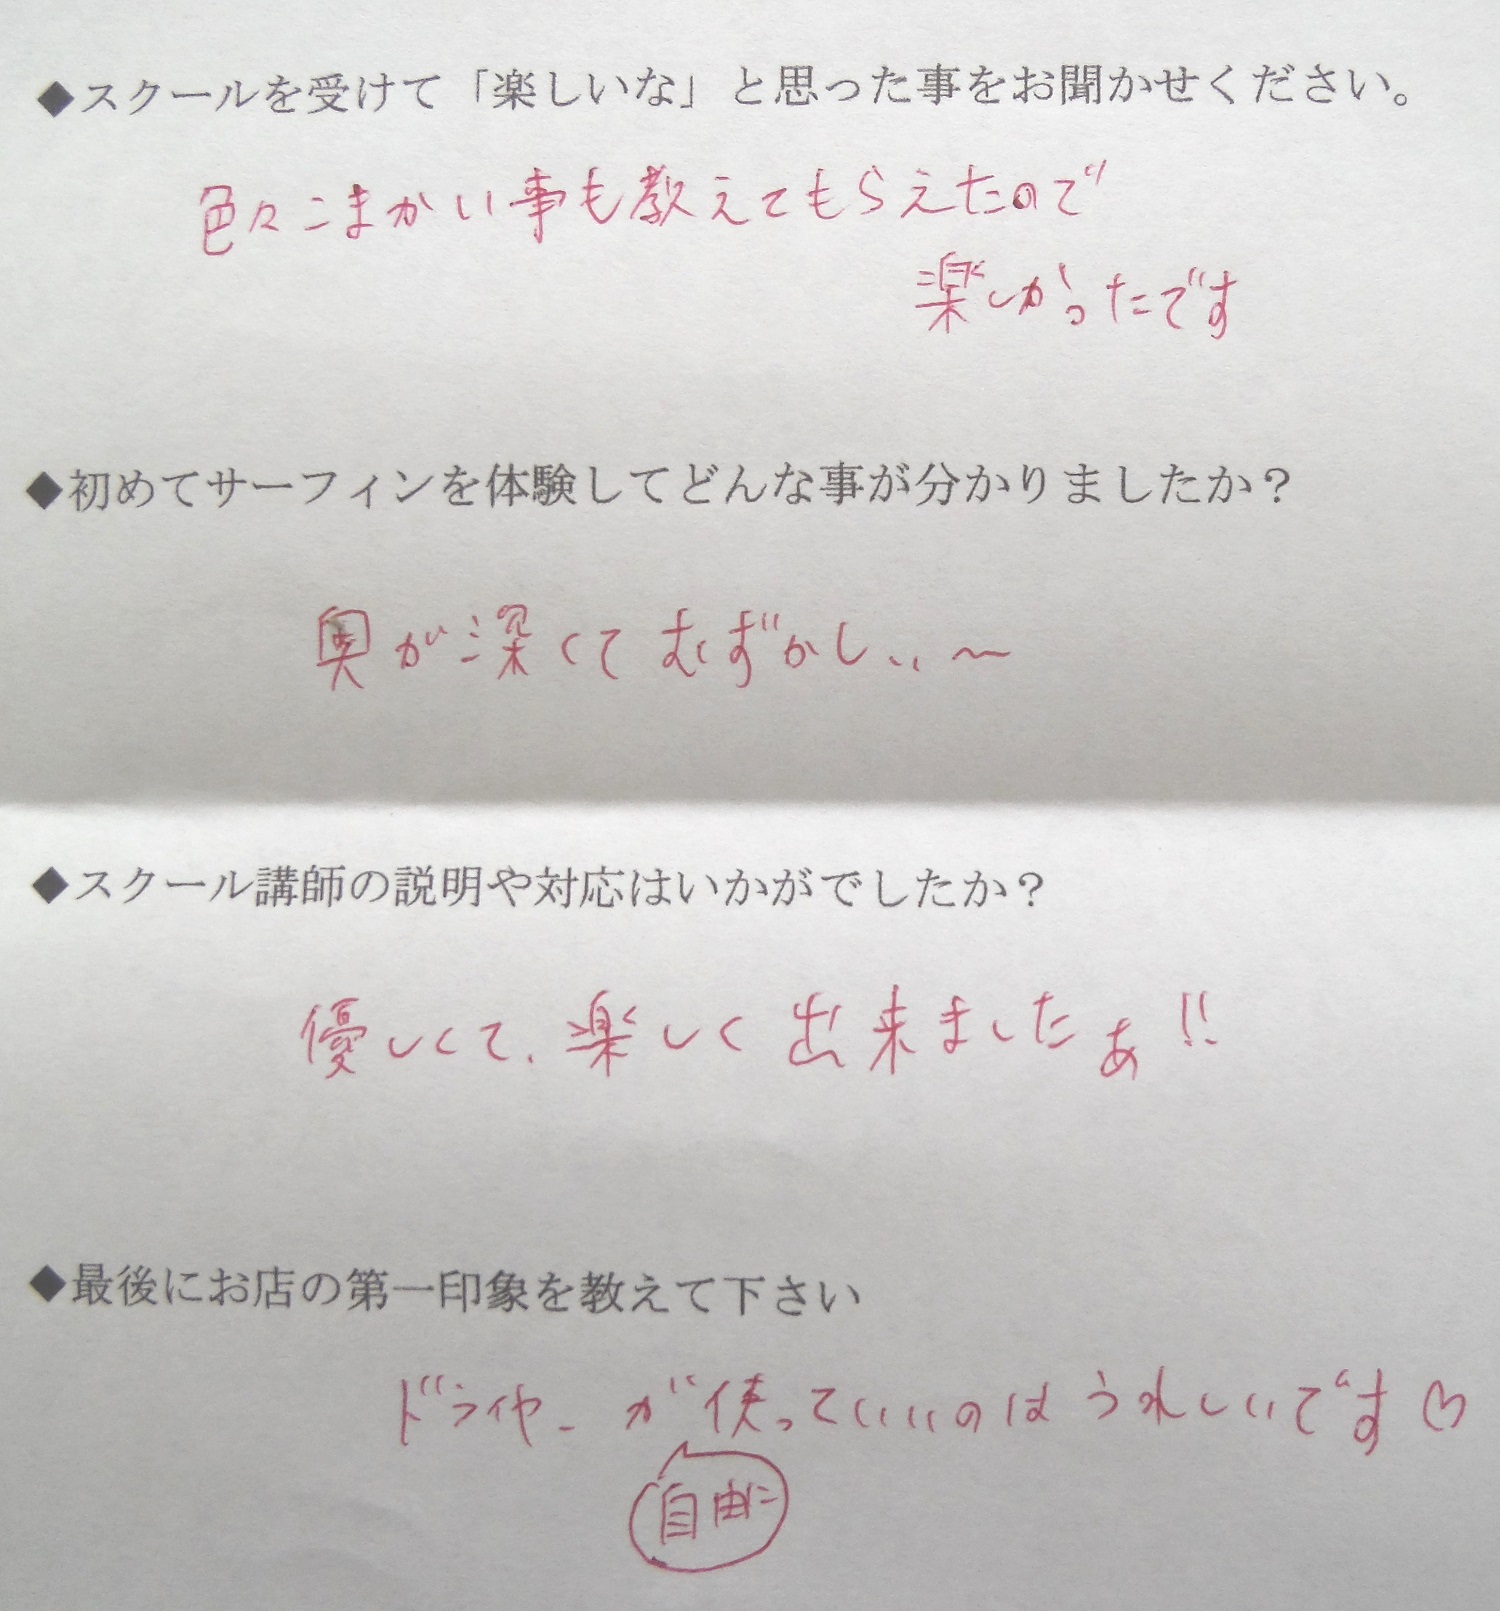 ◆スクールを受けて「楽しいな」と思った事をお聞かせください。
色々こまかい事も教えてもらえたので
楽しかったです
◆初めてサーフィンを体験してどんな事が分かりましたか？
奥が深くてむずかしい～
◆スクール講師の説明や対応はいかがでしたか？
優しくて、楽しく出来ましたぁ!!
◆最後にお店の第一印象を教えて下さい
ドライヤーが使っていいのはうれしいです♡
自由に